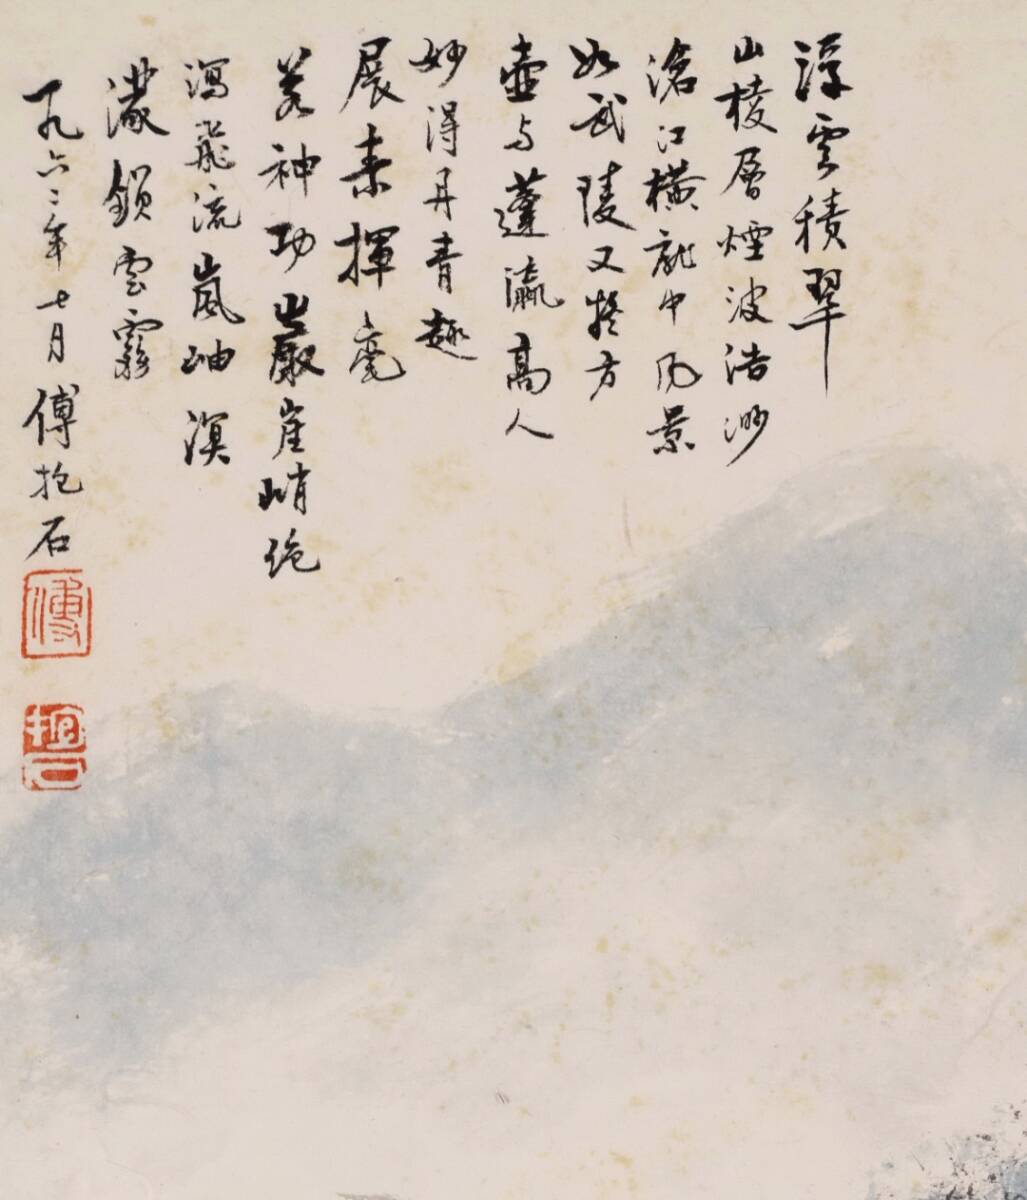 浮雲積翠
山稜層煙波浩渺
滄江橫龍中風景
如武陵又擬方
壺与蓬瀛高人
妙得丹青趣
展素揮毫
若神功巖崖峭絶
瀉飛流嵐岫溟
濛鎖雲霧
一九六二年七月傅抱石
傅
抱石